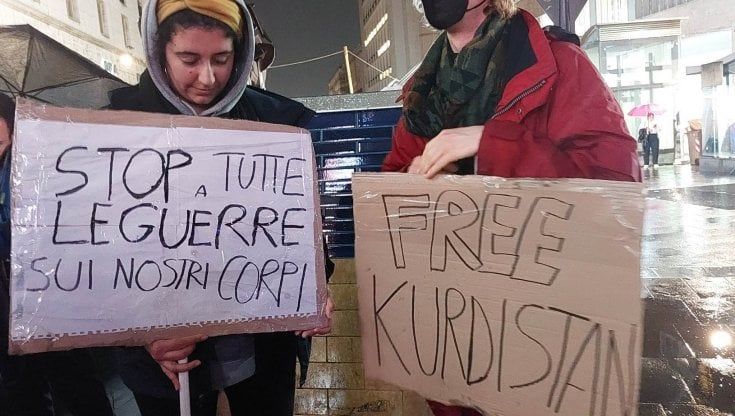 STOP A TUTTE
LE GUERRE
SUI NOSTRI CORPI
FREE
KURDISTAN